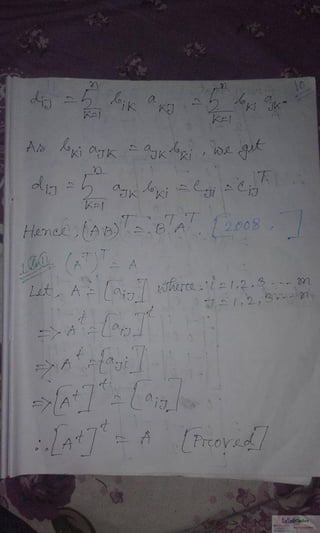 10
d_ij = Σ_{k=1}^{n} b_ik a_kj = Σ_{k=1}^{n} b_ki a_jk.
As b_ki a_jk = a_jk b_ki, we get
d_ij = Σ_{k=1}^{n} a_jk b_ki = c_ji = c_ij^T.
Hence, (AB)^T = B^T A^T. [2008, ]
(A^T)^T = A
Let, A = [a_ij] where i = 1,2,3 .... m
j = 1,2,3....n
=> A^t = [a_ij]^t
=> A^t = [a_ji]
=> [A^t]^t = [a_ij]
∴ [A^t]^t = A [Proved]